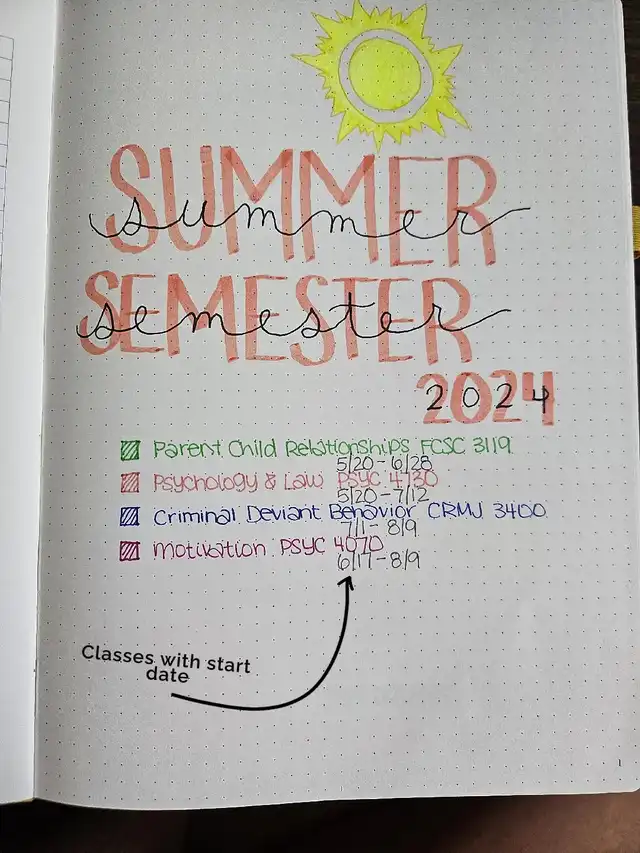 SUMMER
summer
SEMESTER
semester
2024
Parent Child Relationships FCSC 3119
5/20 - 6/28
Psychology & Law PSYC 4730
5/20 - 7/12
Criminal Deviant Behavior CRMJ 3400
7/1 - 8/9
Motivation PSYC 4070
6/17 - 8/9
Classes with start
date
1